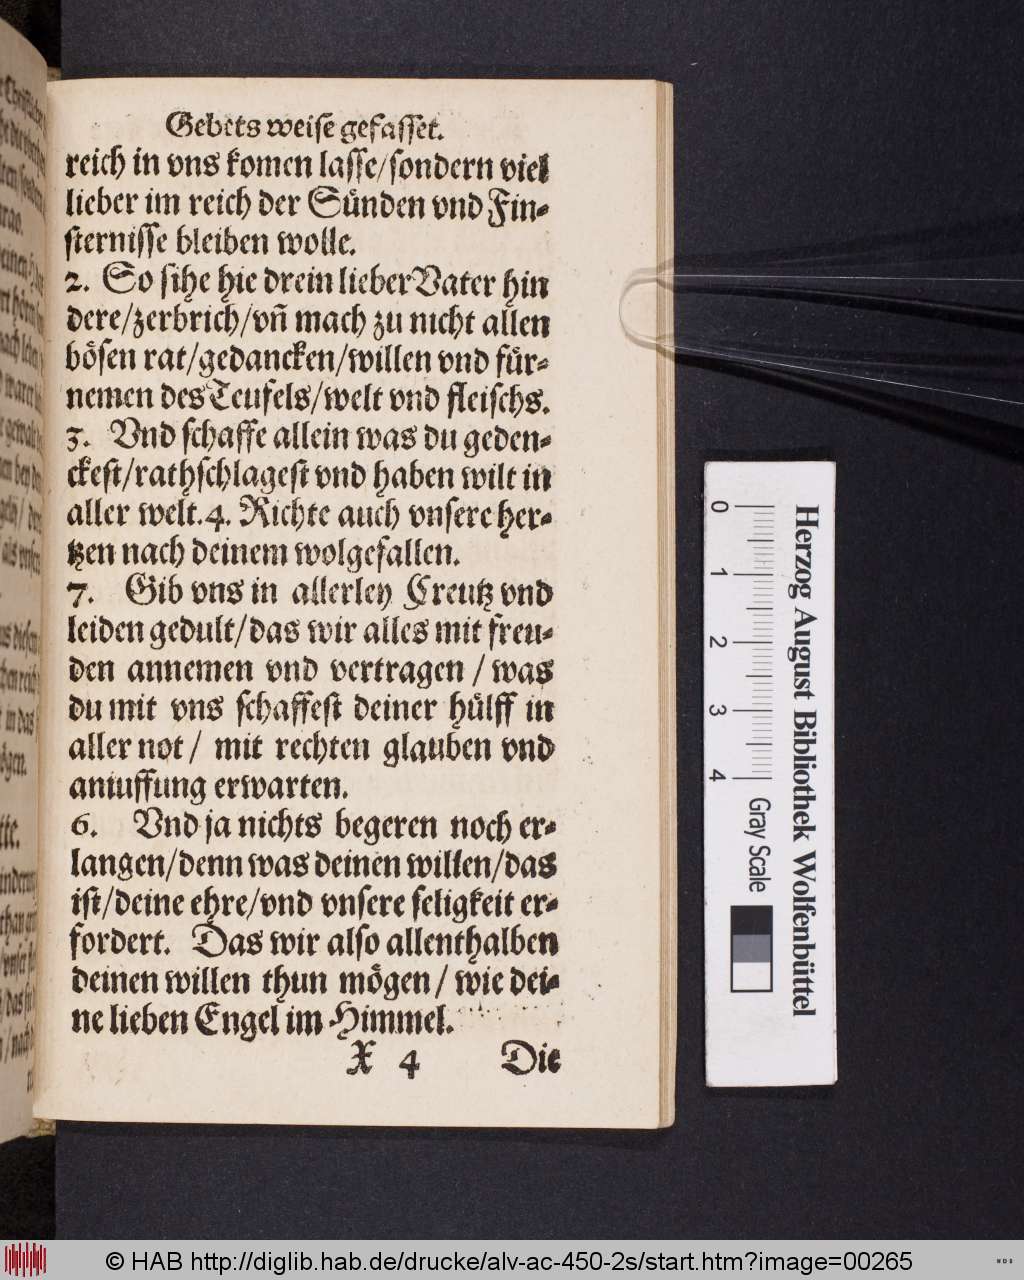 Gebets weise gefasset.
reich in vns komen lasse/sondern viel
lieber im reich der Sünden vnd Fin⸗
sternisse bleiben wolle.
2. So sihe hie drein lieber Vater hin
dere/zerbrich/vñ mach zu nicht allen
bösen rat/gedancken/willen vnd für⸗
nemen des Teufels/welt vnd fleischs.
3. Vnd schaffe allein was du geden⸗
ckest/rathschlagest vnd haben wilt in
aller welt. 4. Richte auch vnsere her⸗
tzen nach deinem wolgefallen.
7. Gib vns in allerley Creutz vnd
leiden gedult/das wir alles mit freu⸗
den annemen vnd vertragen / was
du mit vns schaffest deiner hülff in
aller not / mit rechten glauben vnd
anruffung erwarten.
6. Vnd ja nichts begeren noch er⸗
langen/denn was deinen willen/das
ist/deine ehre/vnd vnsere seligkeit er⸗
fordert. Das wir also allenthalben
deinen willen thun mögen / wie dei⸗
ne lieben Engel im Himmel.
X 4 Die
Herzog August Bibliothek Wolfenbüttel
0 1 2 3 4 Gray Scale
© HAB http://diglib.hab.de/drucke/alv-ac-450-2s/start.htm?image=00265